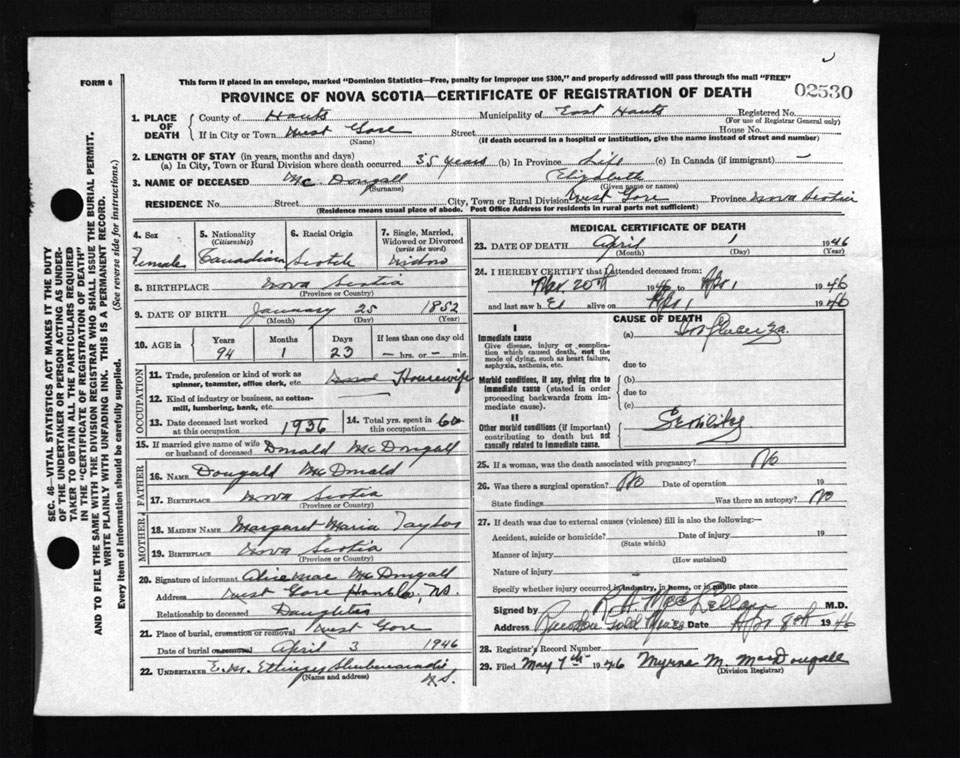 FORM 6
This form if placed in an envelope, marked "Dominion Statistics—Free, penalty for improper use $300," and properly addressed will pass through the mail "FREE"
PROVINCE OF NOVA SCOTIA—CERTIFICATE OF REGISTRATION OF DEATH
02530
SEC. 46—VITAL STATISTICS ACT MAKES IT THE DUTY
OF THE UNDERTAKER OR PERSON ACTING AS UNDER-
TAKER TO OBTAIN ALL THE PARTICULARS REQUIRED
IN THE "CERTIFICATE OF REGISTRATION OF DEATH"
AND TO FILE THE SAME WITH THE DIVISION REGISTRAR WHO SHALL ISSUE THE BURIAL PERMIT.
WRITE PLAINLY WITH UNFADING INK. THIS IS A PERMANENT RECORD.
Every item of information should be carefully supplied. (See reverse side for instructions.)
1. PLACE OF DEATH County of Hants Municipality of East Hants Registered No.
(For use of Registrar General only)
If in City or Town West Gore Street House No.
(Name) (If death occurred in a hospital or institution, give the name instead of street and number)
2. LENGTH OF STAY (in years, months and days)
(a) In City, Town or Rural Division where death occurred 35 years (b) In Province Life (c) In Canada (if immigrant) —
3. NAME OF DECEASED Mc Dougall Elizabeth
(Surname) (Given name or names)
RESIDENCE No. Street City, Town or Rural Division West Gore Province Nova Scotia
(Residence means usual place of abode. Post Office Address for residents in rural parts not sufficient)
4. Sex 5. Nationality (Citizenship) 6. Racial Origin 7. Single, Married, Widowed or Divorced (write the word)
Female Canadian Scotch Widow
8. BIRTHPLACE Nova Scotia
(Province or Country)
9. DATE OF BIRTH January 25 1852
(Month) (Day) (Year)
10. AGE in Years Months Days If less than one day old
94 1 23 — hrs. or — min.
OCCUPATION
11. Trade, profession or kind of work as spinner, teamster, office clerk, etc. Housewife
12. Kind of industry or business, as cotton-mill, lumbering, bank, etc.
13. Date deceased last worked at this occupation 1936 14. Total yrs. spent in this occupation 60
15. If married give name of wife or husband of deceased Donald McDougall
FATHER
16. NAME Dougald McDonald
17. BIRTHPLACE Nova Scotia
MOTHER
18. MAIDEN NAME Margaret Maria Taylor
19. BIRTHPLACE Nova Scotia
(Province or Country)
20. Signature of informant Alice Mae McDougall
Address West Gore Hants Co., N.S.
Relationship to deceased Daughter
21. Place of burial, cremation or removal West Gore
Date of burial or removal April 3 1946
22. UNDERTAKER E. M. Ettinger Shubenacadie
(Name and address) N.S.
MEDICAL CERTIFICATE OF DEATH
23. DATE OF DEATH April 1 1946
(Month) (Day) (Year)
24. I HEREBY CERTIFY that I attended deceased from:
Mar. 20th 1946 to Apr 1 1946
and last saw h Er alive on Apr 1 1946
CAUSE OF DEATH
I
Immediate cause (a) Influenza.
Give disease, injury or complication which caused death, not the mode of dying, such as heart failure, asphyxia, asthenia, etc.
due to
Morbid conditions, if any, giving rise to immediate cause (stated in order proceeding backwards from immediate cause). (b)
due to
(c)
II
Other morbid conditions (if important) contributing to death but not causally related to immediate cause. Senility
25. If a woman, was the death associated with pregnancy? No
26. Was there a surgical operation? No Date of operation 19
State findings Was there an autopsy? No
27. If death was due to external causes (violence) fill in also the following:—
Accident, suicide or homicide? Date of injury 19
(State which)
Manner of injury
(How sustained)
Nature of injury
Specify whether injury occurred in industry, in home, or in public place
Signed by R. H. MacLellan M.D.
Address Rawdon Gold Mines Date Apr 8th 1946
28. Registrar's Record Number
29. Filed May 7th 1946 Myrna M. MacDougall
(Division Registrar)